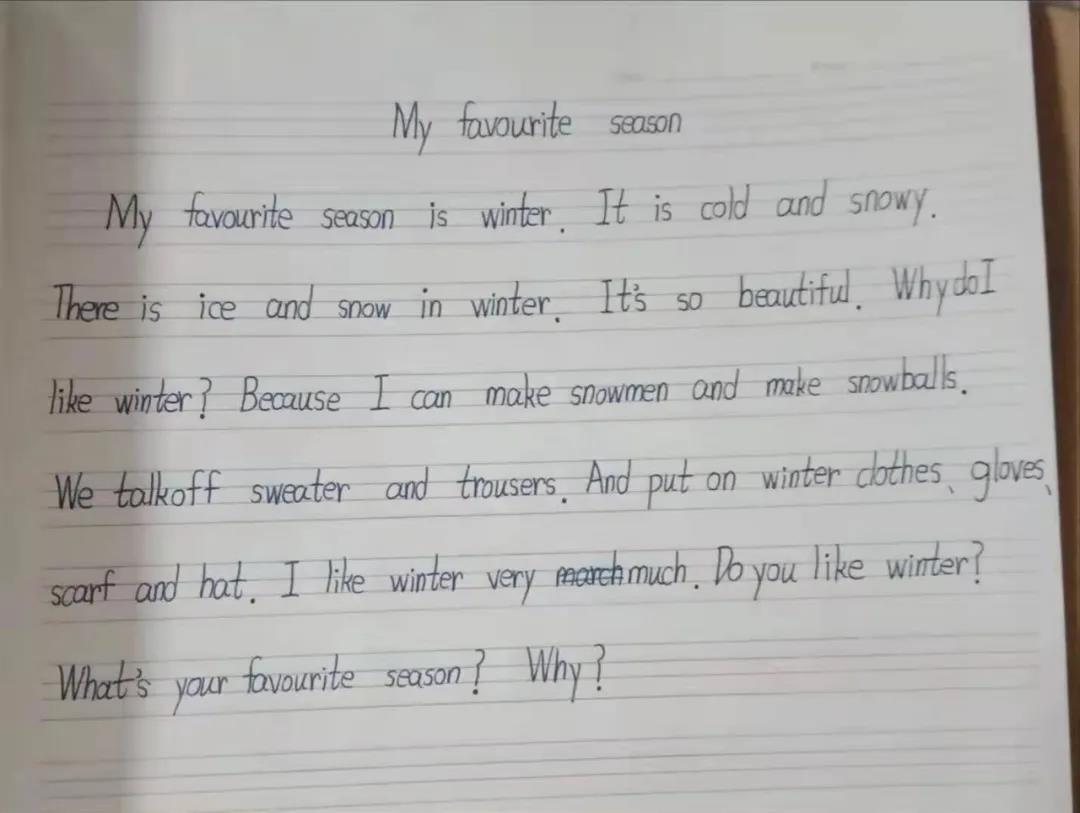 My favourite season
My favourite season is winter. It is cold and snowy.
There is ice and snow in winter. It's so beautiful. Why do I
like winter? Because I can make snowmen and make snowballs.
We talkoff sweater and trousers. And put on winter clothes、gloves、
scarf and hat. I like winter very march much. Do you like winter?
What's your favourite season? Why?